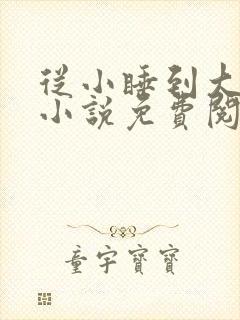 從小睡到大
小說免費閱
童宇寶寶